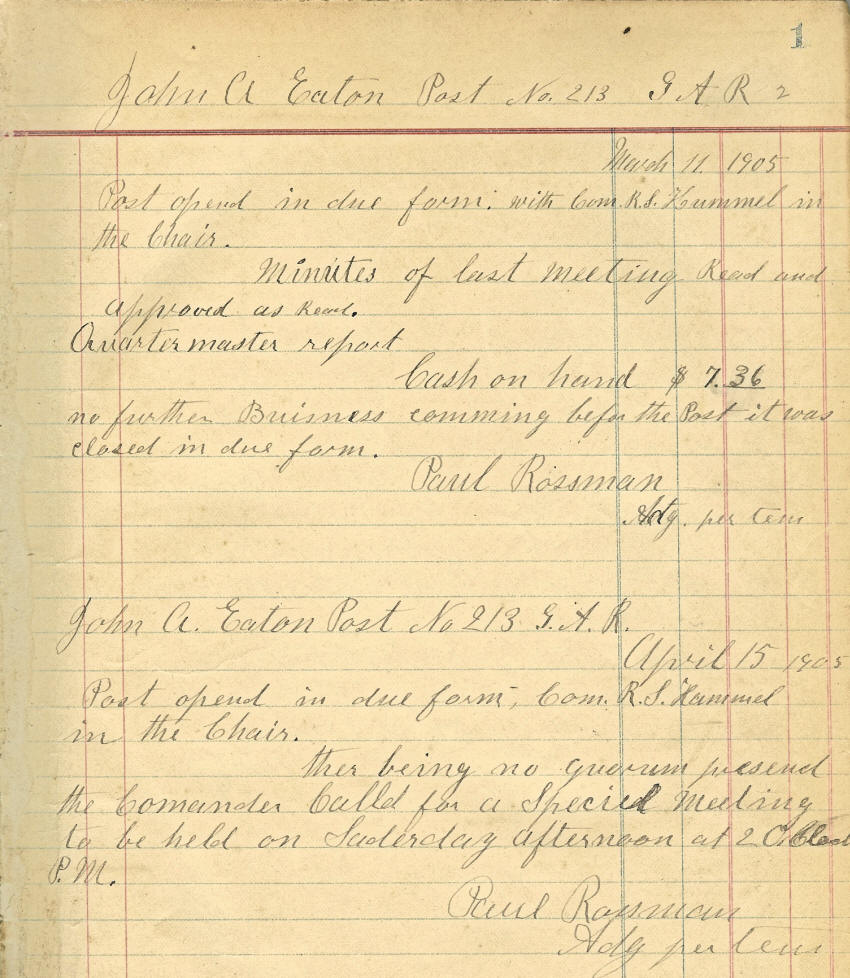 1
John A Eaton Post No. 213 G A R
March 11. 1905
Post opend in due form. with Com. R.S. Hummel in
the Chair.
Minutes of last meeting Read and
approved as Read.
Quartermaster report
Cash on hand $ 7.36
no further Buisness comming befor the Post it was
closed in due form.
Paul Rossman
Adg. per tem
John A. Eaton Post No 213 G.A.R.
April 15 1905
Post opend in due form, Com. R.S. Hummel
in the Chair.
ther being no quorum presend
the Comander Calld for a Speciel Meeting
to be held on Saderday afternoon at 2 O Clock
P.M.
Paul Rossman
Adg per tem